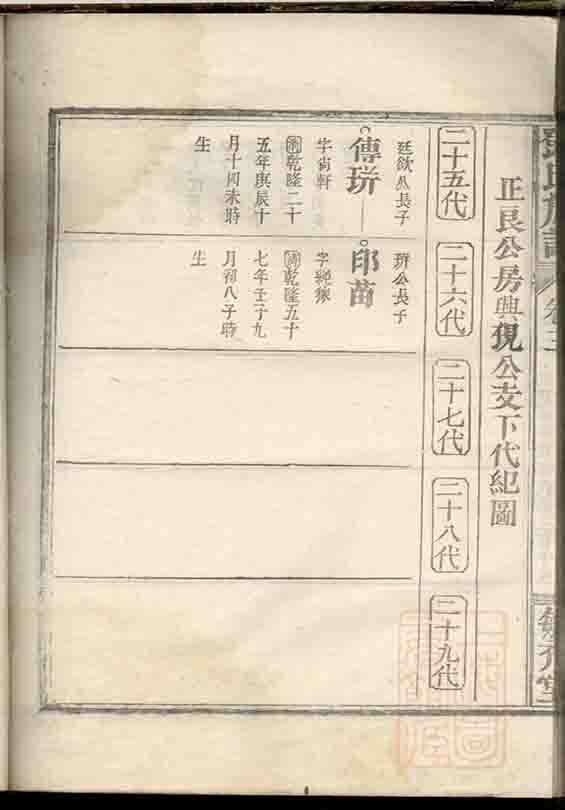 正良公房興現公支下代紀圖
二十五代
二十六代
二十七代
二十八代
二十九代
廷欽公長子
傳琾
字尚軒
乾隆二十
五年庚辰十
月十四未時
生
琾公長子
印苗
字
乾隆五十
七年壬子九
月初八子時
生
氏族譜
卷三